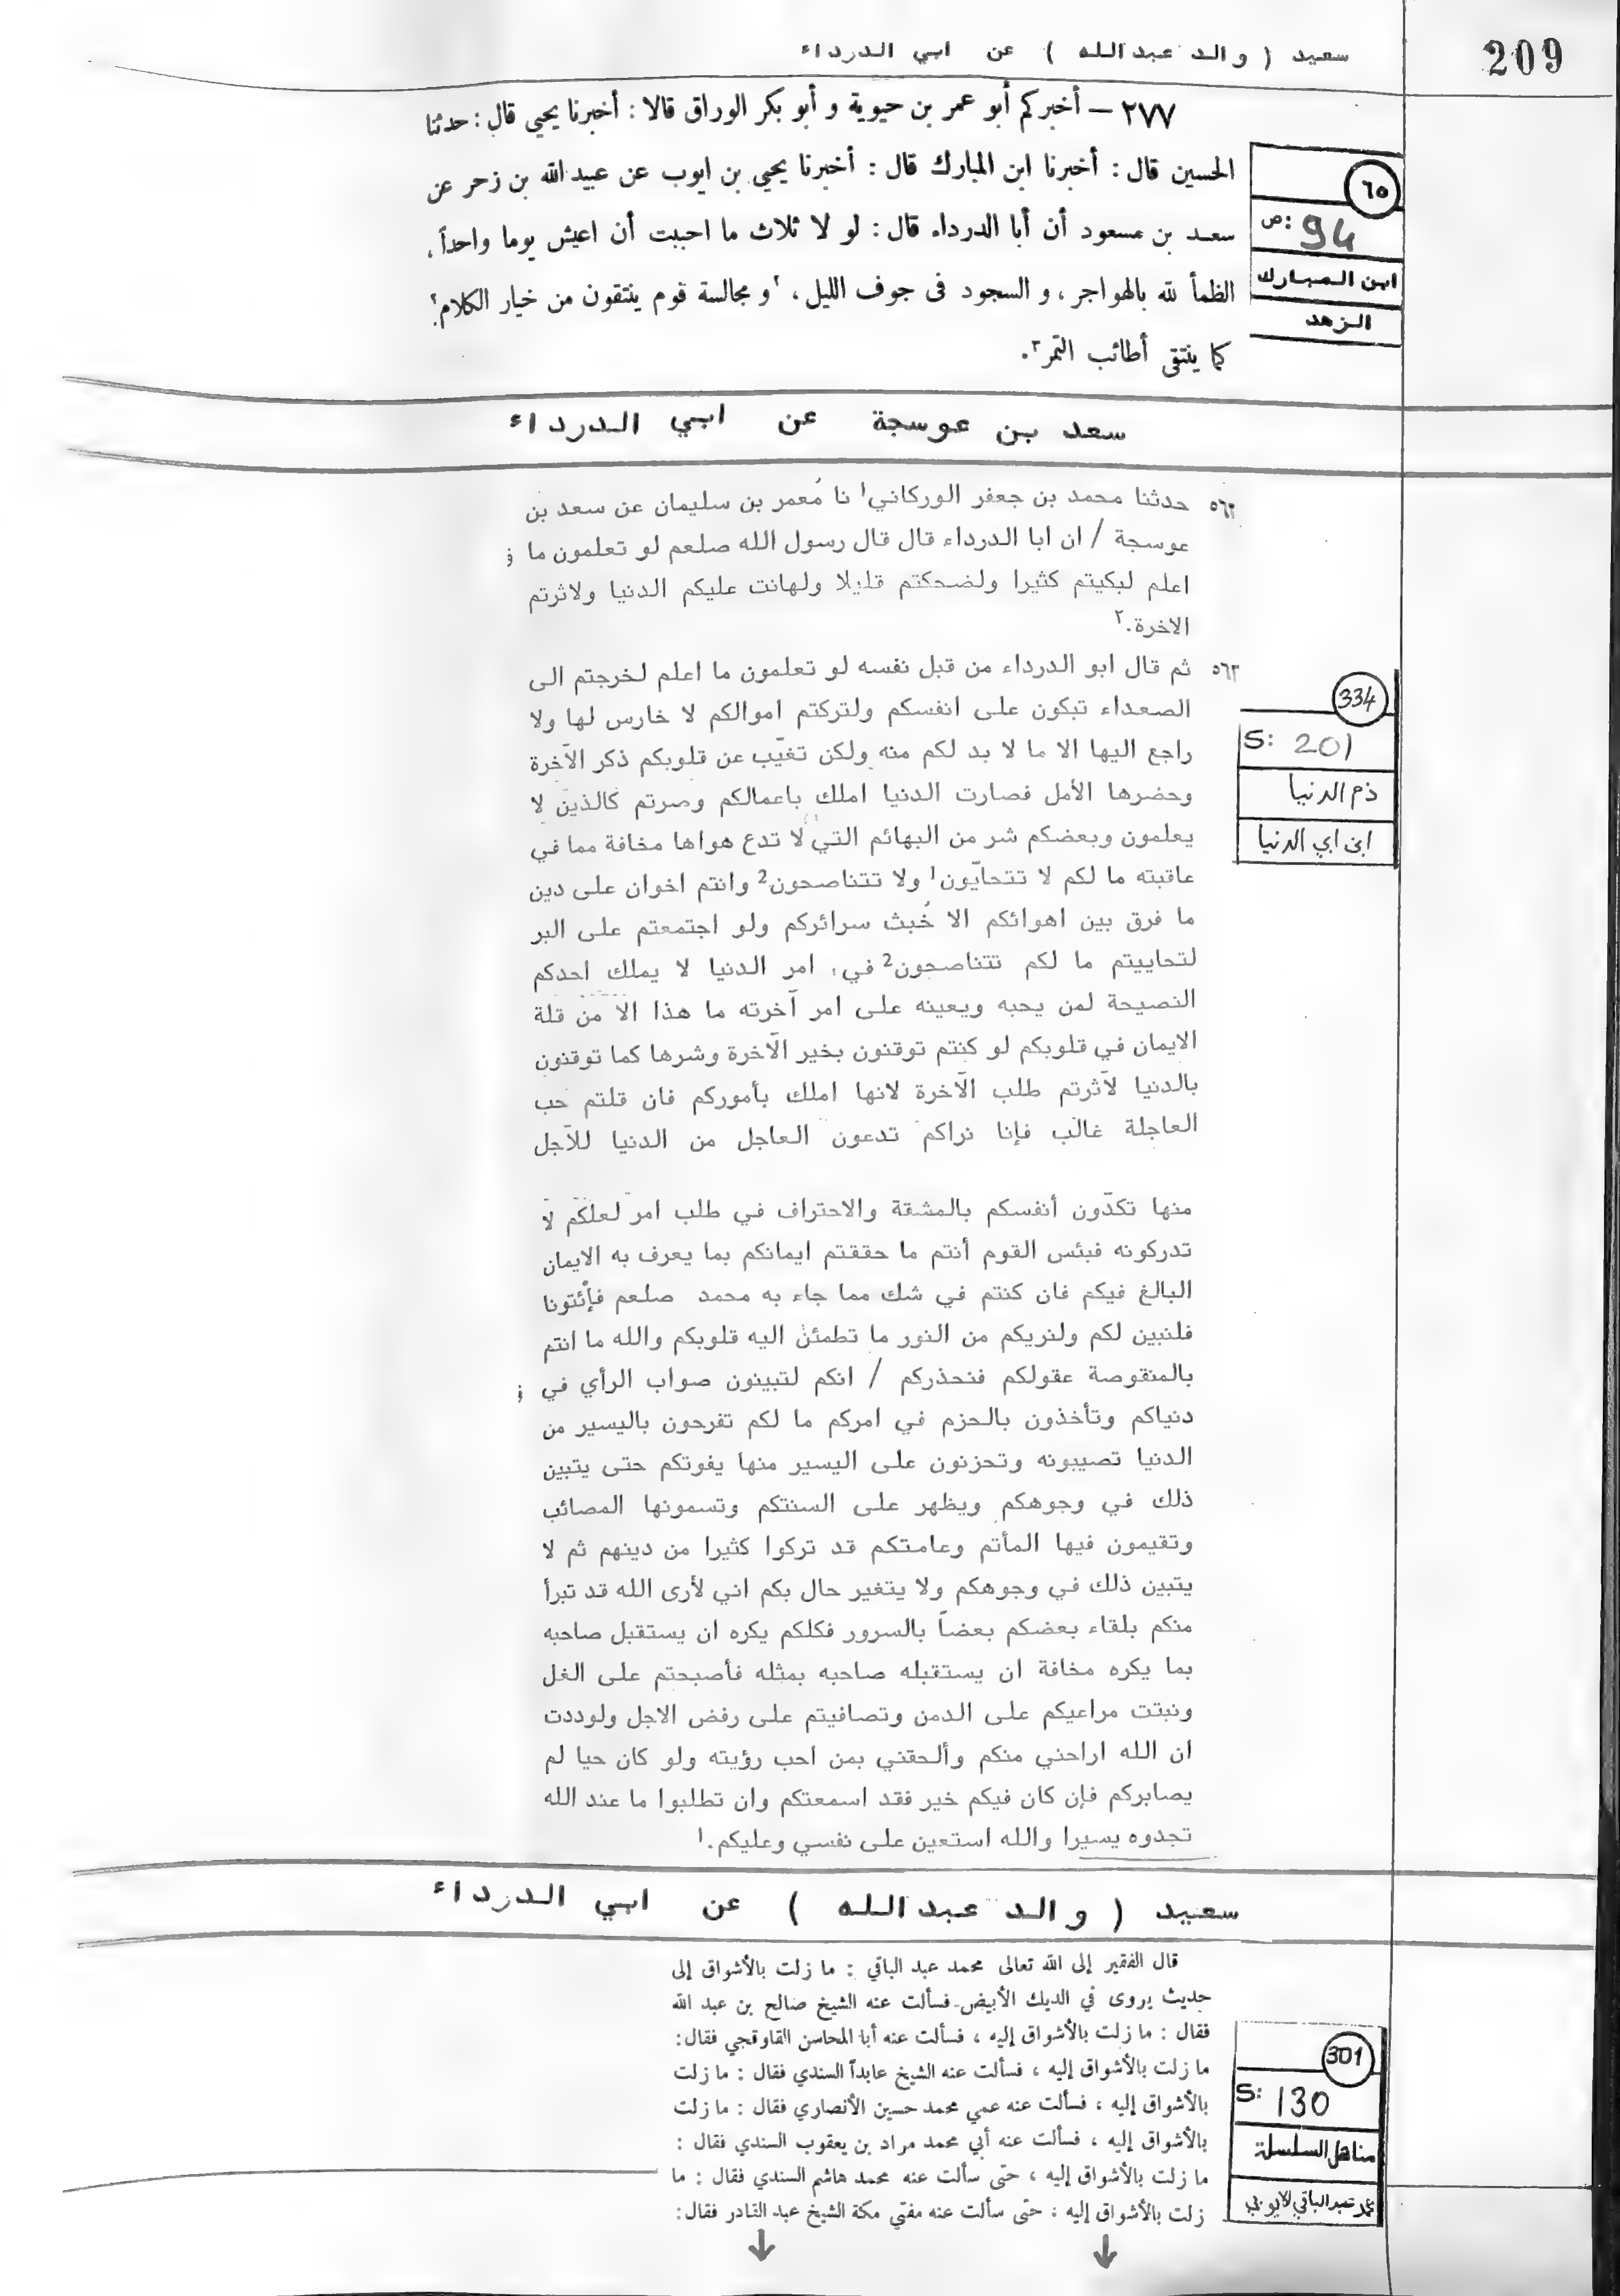 209
سعيد ( والد عبدالله ) عن ابي الدرداء
٢٧٧ – أخبركم أبو عمر بن حيوية و أبو بكر الوراق قالا : أخبرنا يحيى قال : حدثنا
الحسين قال : أخبرنا ابن المبارك قال : أخبرنا يحيى بن ايوب عن عبيد الله بن زحر عن
سعد بن مسعود أن أبا الدرداء قال : لو لا ثلاث ما احببت أن اعيش يوما واحداً ،
الظمأ لله بالهواجر ، و السجود فى جوف الليل ،٢ و مجالسة قوم ينتقون من خيار الكلام٢
كما ينتقى أطائب التمر٣ .
٦٥
ص: 94
ابن المبارك
الزهد
سعد بن عوسجة عن ابي الدرداء
حدثنا محمد بن جعفر الوركاني١ نا مُعمر بن سليمان عن سعد بن
عوسجة / ان ابا الدرداء قال قال رسول الله صلعم لو تعلمون ما
اعلم لبكيتم كثيرا ولضحكتم قليلا ولهانت عليكم الدنيا ولاثرتم
الاخرة.٢
ثم قال ابو الدرداء من قبل نفسه لو تعلمون ما اعلم لخرجتم الى
الصعداء تبكون على انفسكم ولتركتم اموالكم لا خارس لها ولا
راجع اليها الا ما لا بد لكم منه ولكن تغيّب عن قلوبكم ذكر الآخرة
وحضرها الأمل فصارت الدنيا املك باعمالكم وصرتم كالذين لا
يعلمون وبعضكم شر من البهائم التي لا تدع هواها مخافة مما في
عاقبته ما لكم لا تتحابّون1 ولا تتناصحون2 وانتم اخوان على دين
ما فرق بين اهوائكم الا خُبث سرائركم ولو اجتمعتم على البر
لتحاييتم ما لكم تتناصحون2 في امر الدنيا لا يملك احدكم
النصيحة لمن يحبه ويعينه على امر آخرته ما هذا الا من قلة
الايمان في قلوبكم لو كنتم توقنون بخير الآخرة وشرها كما توقنون
بالدنيا لآثرتم طلب الآخرة لانها املك بأموركم فان قلتم حب
العاجلة غالب فإنا نراكم تدعون العاجل من الدنيا للآجل
334
S: 201
ذم الدنيا
ابن ابي الدنيا
منها تكدّون أنفسكم بالمشقة والاحتراف في طلب امر لعلكم لا
تدركونه فبئس القوم أنتم ما حققتم ايمانكم بما يعرف به الايمان
البالغ فيكم فان كنتم في شك مما جاء به محمد صلعم فأئتونا
فلنبين لكم ولنريكم من النور ما تطمئن اليه قلوبكم والله ما انتم
بالمنقوصة عقولكم فنحذركم / انكم لتبينون صواب الرأي في
دنياكم وتأخذون بالحزم في امركم ما لكم تفرحون باليسير من
الدنيا تصيبونه وتحزنون على اليسير منها يفوتكم حتى يتبين
ذلك في وجوهكم ويظهر على السنتكم وتسمونها المصائب
وتقيمون فيها المأتم وعامتكم قد تركوا كثيرا من دينهم ثم لا
يتبين ذلك في وجوهكم ولا يتغير حال بكم اني لأرى الله قد تبرأ
منكم بلقاء بعضكم بعضاً بالسرور فكلكم يكره ان يستقبل صاحبه
بما يكره مخافة ان يستقبله صاحبه بمثله فأصبحتم على الغل
ونبتت مراعيكم على الدمن وتصافيتم على رفض الاجل ولوددت
ان الله اراحني منكم وألحقني بمن احب رؤيته ولو كان حيا لم
يصابركم فإن كان فيكم خير فقد اسمعتكم وان تطلبوا ما عند الله
تجدوه يسيرا والله استعين على نفسي وعليكم.١
سعيد ( والد عبدالله ) عن ابي الدرداء
قال الفقير إلى الله تعالى محمد عبد الباقي : ما زلت بالأشواق إلى
حديث يروى في الديك الأبيض فسألت عنه الشيخ صالح بن عبد الله
فقال : ما زلت بالأشواق إليه ، فسألت عنه أبا المحاسن القاوقجي فقال :
ما زلت بالأشواق إليه ، فسألت عنه الشيخ عابداً السندي فقال : ما زلت
بالأشواق إليه ، فسألت عنه عمي محمد حسين الأنصاري فقال : ما زلت
بالأشواق إليه ، فسألت عنه أبي محمد مراد بن يعقوب السندي فقال :
ما زلت بالأشواق إليه ، حتى سألت عنه محمد هاشم السندي فقال : ما
زلت بالأشواق إليه ، حتّى سألت عنه مفتي مكة الشيخ عبد القادر فقال :
301
S: 130
مناهل السلسلة
محمد عبد الباقي الايوبي